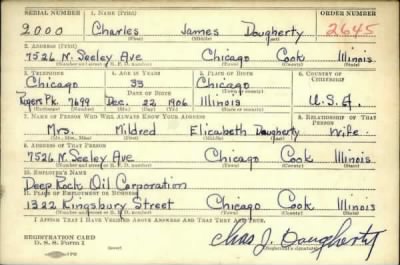 SERIAL NUMBER 1. NAME (Print) ORDER NUMBER
2000 Charles James Dougherty 2645
(First) (Middle) (Last)
2. ADDRESS (Print)
7526 N. Seeley Ave Chicago Cook Illinois
(Number and street or R. F. D. number) (Town) (County) (State)
3. TELEPHONE 4. AGE IN YEARS 5. PLACE OF BIRTH 6. COUNTRY OF CITIZENSHIP
Chicago 33 Chicago
DATE OF BIRTH
Rogers Pk. 7699 Dec. 22 1906 Illinois U.S.A.
7. NAME OF PERSON WHO WILL ALWAYS KNOW YOUR ADDRESS 8. RELATIONSHIP OF THAT PERSON
Mrs. Mildred Elizabeth Dougherty Wife
(Mr., Mrs., Miss) (First) (Middle) (Last)
9. ADDRESS OF THAT PERSON
7526 N. Seeley Ave Chicago Cook Illinois
(Number and street or R. F. D. number) (Town) (County) (State)
10. EMPLOYER'S NAME
Deep Rock Oil Corporation
11. PLACE OF EMPLOYMENT OR BUSINESS
1322 Kingsbury Street Chicago Cook Illinois
(Number and street or R. F. D. number) (Town) (County) (State)
I AFFIRM THAT I HAVE VERIFIED ABOVE ANSWERS AND THAT THEY ARE TRUE.
REGISTRATION CARD
D. S. S. Form 1 Chas J. Dougherty
(Registrant's signature)